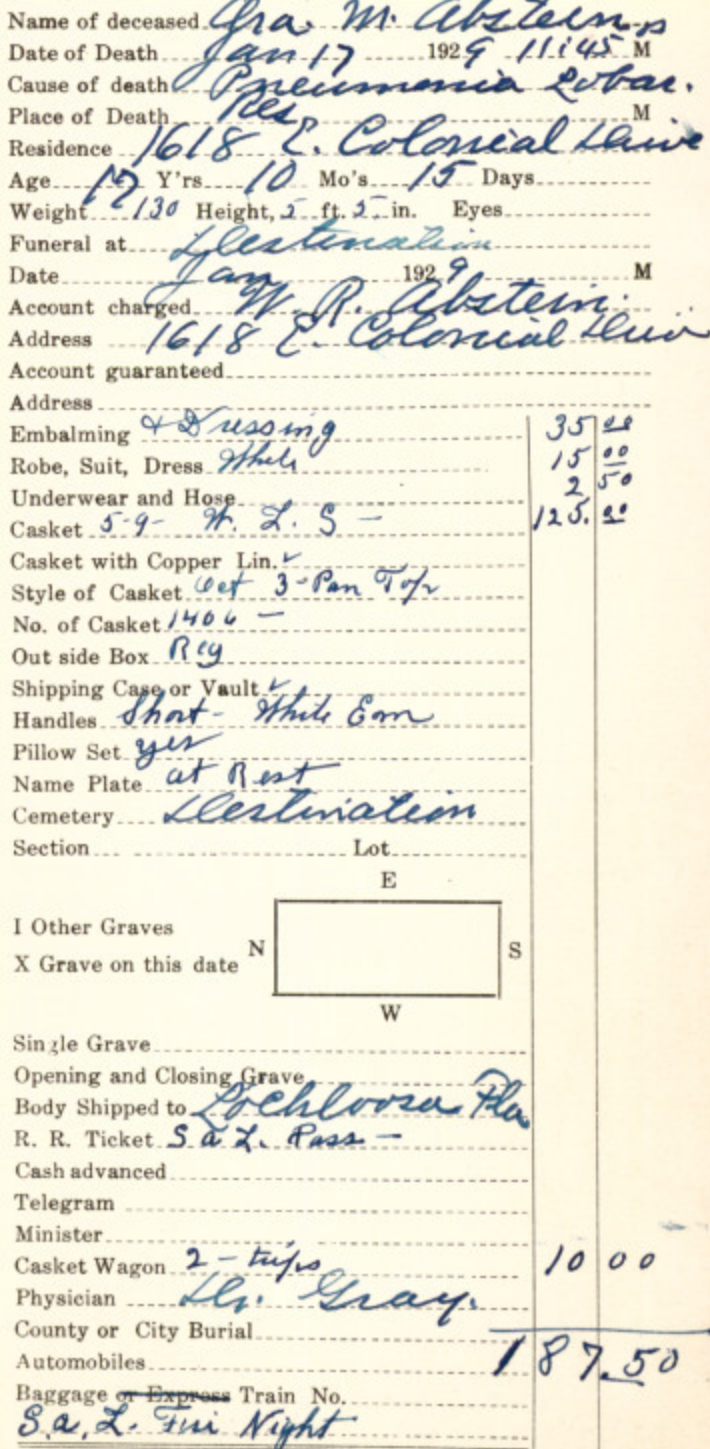 Name of deceased Ira. M. Abstein
Date of Death Jan 17 1929 11:45 M
Cause of death Pneumonia Lobar.
Place of Death Res M
Residence 1618 E. Colonial Drive
Age 17 Y'rs 10 Mo's 15 Days
Weight 130 Height, 5 ft. 5 in. Eyes
Funeral at Destination
Date Jan 1929 M
Account charged W. R. Abstein.
Address 1618 E. Colonial Driv
Account guaranteed
Address
Embalming & Dressing 35 00
Robe, Suit, Dress White 15 00
Underwear and Hose 2 50
Casket 5-9- W. L. S - 125. 00
Casket with Copper Lin. ✓
Style of Casket Oct 3-Pan Top
No. of Casket 1406 -
Out side Box Reg
Shipping Case or Vault ✓
Handles Short - White Em
Pillow Set yes
Name Plate at Rest
Cemetery Destination
Section Lot
E
I Other Graves
N S
X Grave on this date
W
Single Grave
Opening and Closing Grave
Body Shipped to Lochloosa Fla
R. R. Ticket S a L. Pass -
Cash advanced
Telegram
Minister
Casket Wagon 2 - trips 10 00
Physician Dr. Gray.
County or City Burial
Automobiles 187.50
Baggage or Express Train No.
S.a.L. Night